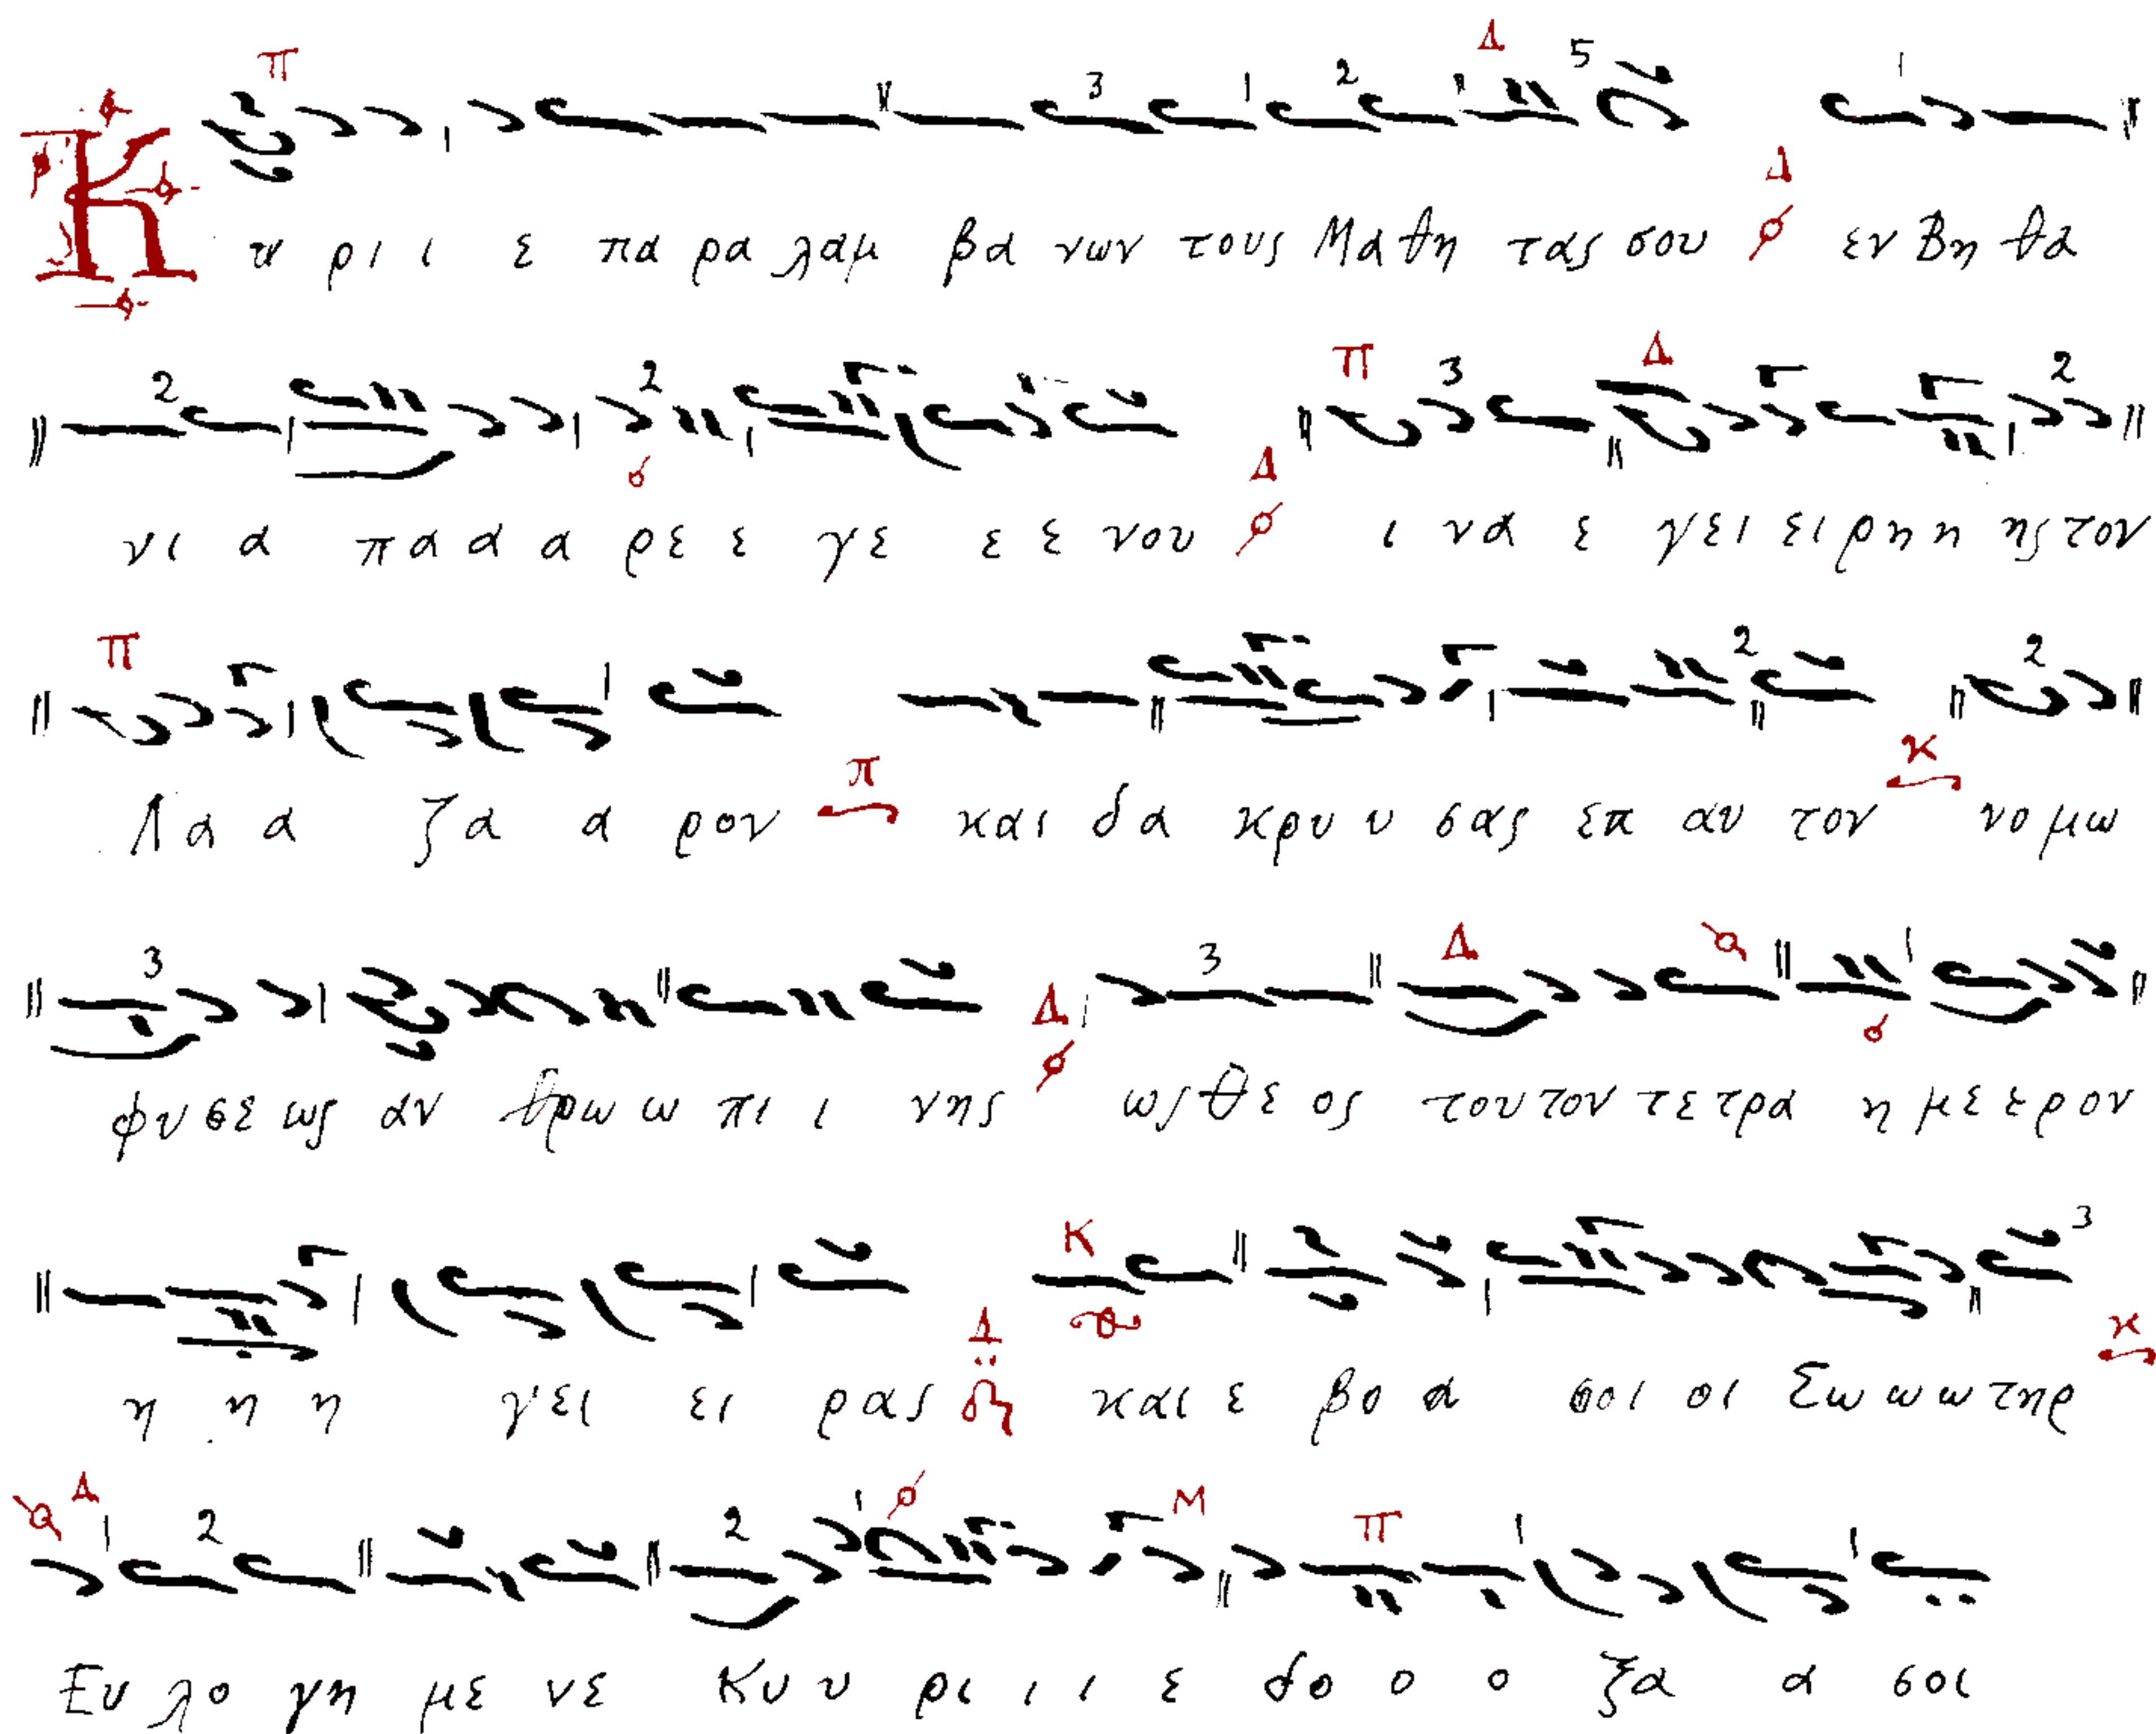 Κυ ρι ι ε πα ρα λαμ βα νων τους Μα θη τας σου εν Βη θα
νι α πα α α α ρε ε γε ε ε νου ι να ε γει ει ρη η ης τον
Λα α ζα α ρον και δα κρυ υ σας επ αυ τον νο μω
φυ σε ως αν θρω ω πι ι νης ως θε ος του τον τε τρα η με ε ρον
η η η γει ει ρας και ε βο α σοι οι Σω ω ω τηρ
Ευ λο γη με νε Κυ υ ρι ι ι ε δο ο ο ξα α σοι